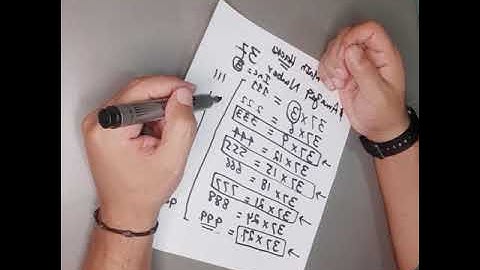 Amazing Number 37
37 x 3 = 111
37 x 6 = 222
37 x 9 = 333
37 x 12 = 444
37 x 15 = 555
37 x 18 = 666
37 x 21 = 777
37 x 24 = 888
37 x 27 = 999